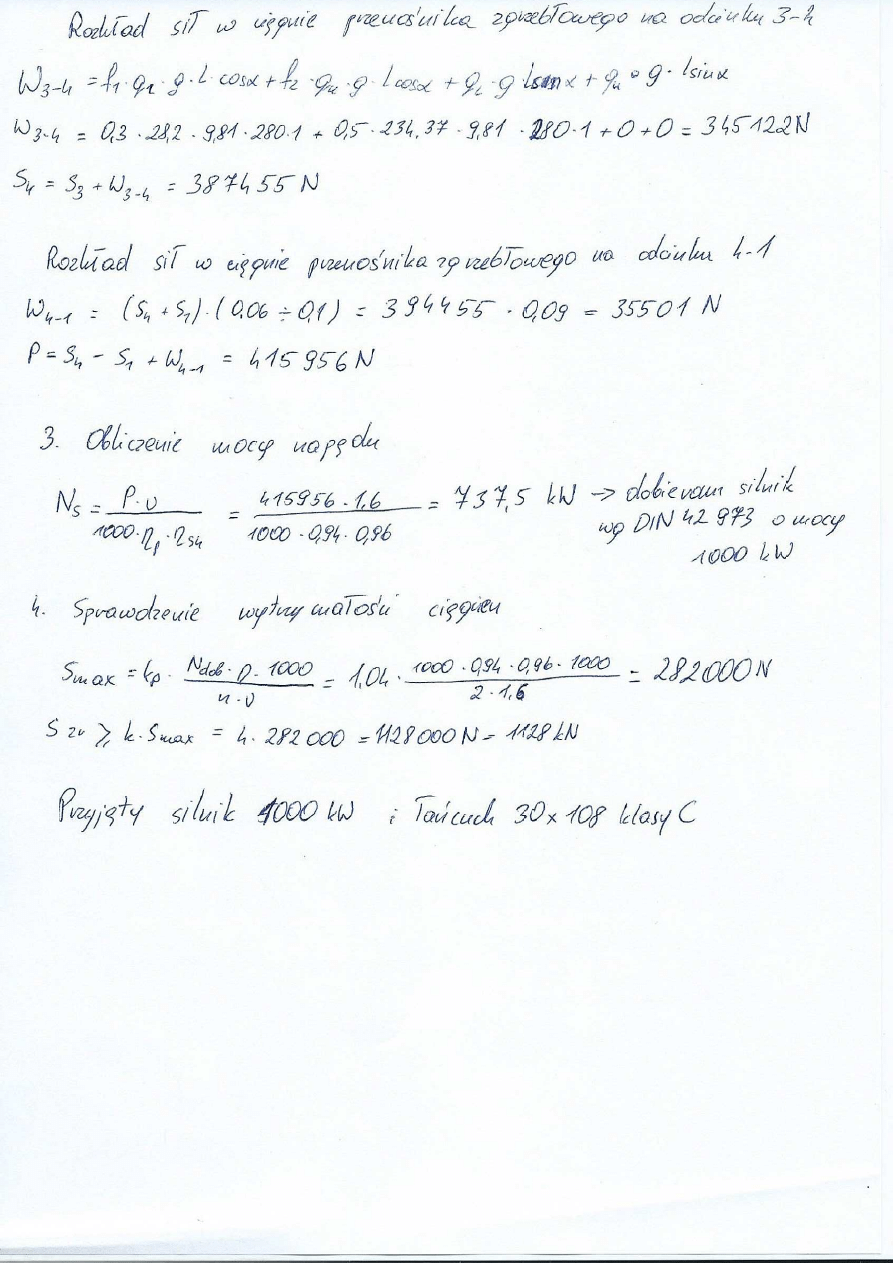 Rozkład sił w cięgnie przenośnika zgrzebłowego na odcinku 3-4
W₃₋₄ = f₁·q₂·g·L·cosα + f₂·qᵤ·g·Lcosα + q_c·g·lsinα + qᵤ·g·lsinα
W₃₋₄ = 0,3·28,2·9,81·280·1 + 0,5·234,37·9,81·280·1 + 0 + 0 = 345122N
S₄ = S₃ + W₃₋₄ = 387455 N
Rozkład sił w cięgnie przenośnika zgrzebłowego na odcinku 4-1
W₄₋₁ = (S₄ + S₁)·(0,06 ÷ 0,1) = 394455 · 0,09 = 35501 N
P = S₄ - S₁ + W₄₋₁ = 415956 N
3. Obliczenie mocy napędu
Nₛ = P·v / 1000·ηₚ·ηₛₕ = 415956·1,6 / 1000·0,94·0,96 = 737,5 kW → dobieram silnik
wg DIN 42 973 o mocy
1000 kW
4. Sprawdzenie wytrzymałości cięgien
Smax = kₚ · Ndob·η·1000 / n·v = 1,04 · 1000·0,94·0,96·1000 / 2·1,6 = 282000 N
S zr ≥ k·Smax = 4·282 000 = 1128000 N = 1128 kN
Przyjęty silnik 1000 kW i łańcuch 30x108 klasy C